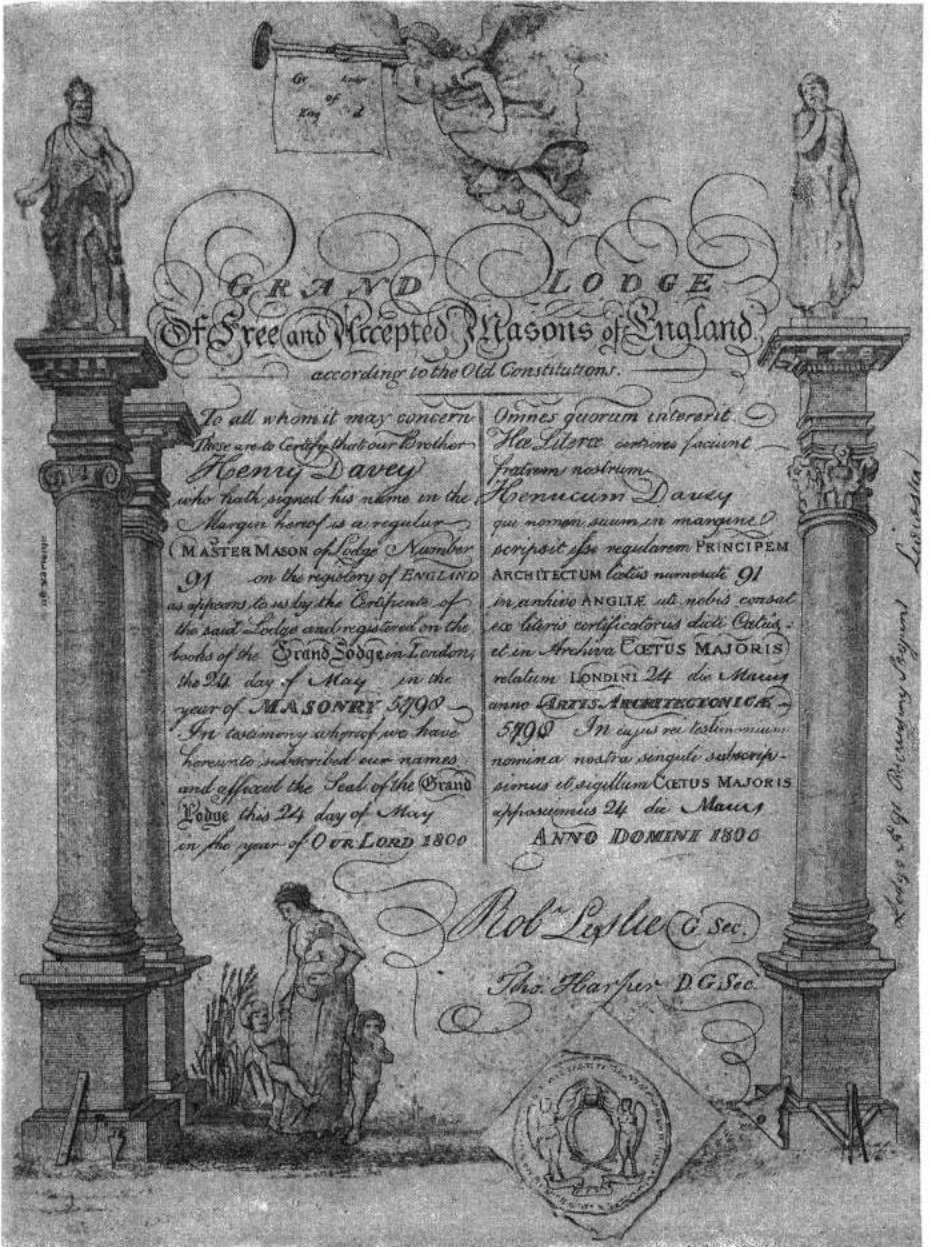 Gr Lodge
of
Eng d
GRAND LODGE
Of Free and Accepted Masons of England,
according to the Old Constitutions.
To all whom it may concern
These are to Certify that our Brother
Henry Davey
who hath signed his name in the
Margin hereof is a regular
MASTER MASON of Lodge Number
91 on the registery of ENGLAND
as appears to us by the Certificate of
the said Lodge and registered on the
books of the Grand Lodge in London,
the 24 day of May in the
year of MASONRY 5798
In testimony whereof we have
hereunto subscribed our names
and affixed the Seal of the Grand
Lodge this 24 day of May
in the year of OUR LORD 1800
Omnes quorum intererit
Hæ Literæ certiores faciunt
fratrem nostrum
Henucum Davey
qui nomen suum in margine
scripsit esse regularem PRINCIPEM
ARCHITECTUM cœtus numerati 91
in archivo ANGLIÆ uti nobis constat
ex literis certificatoriis dicti Cœtus,
et in Archiva CŒTUS MAJORIS
relatum LONDINI 24 die Maius
anno ARTIS ARCHITECTONICÆ
5798 In cujus rei testimonium
nomina nostra singuli subscrip-
simus et sigillum CŒTUS MAJORIS
apposuimus 24 die Maius
ANNO DOMINI 1800
Robt Leslie G. Sec.
Tho. Harper D.G. Sec.
Lodge No 91